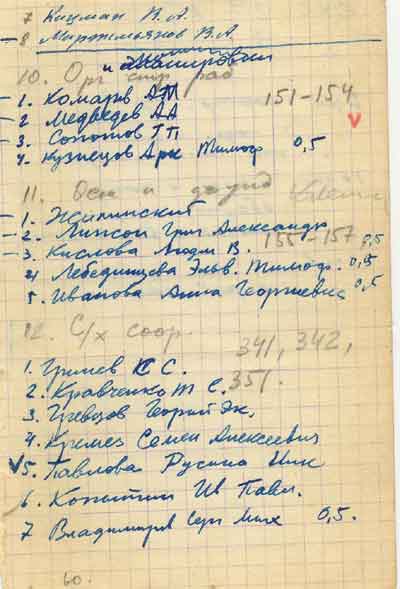 7 Кицман В.А.
– 8 Мартемьянов В.А.
и планировки
10. Орг стр раб
– 1. Комаров АМ 151–154
– 2 Медведев АА
– 3. Солотов ГП v
4. Кузнецов Арк Тимоф 0,5
11. Осн и
– 1. Жилинский
– 2. Линсон Григ Александр
– 3. Кислова Людм В. 155–157 0,5
4 Лебединцева Эльв. Тимоф. 0,5
5. Иванова Анна Георгиевна 0,5
12. С/х соор. 341, 342,
1. Гринев К С. 351.
2. Кравченко М С.
3. Гревцов Георгий Як.
4. Кремез Семен Алексеевич
v5. Павлова Русина Ник
6. Копытин Ив Павл.
7 Владимиров Серг Мих 0,5.
60.